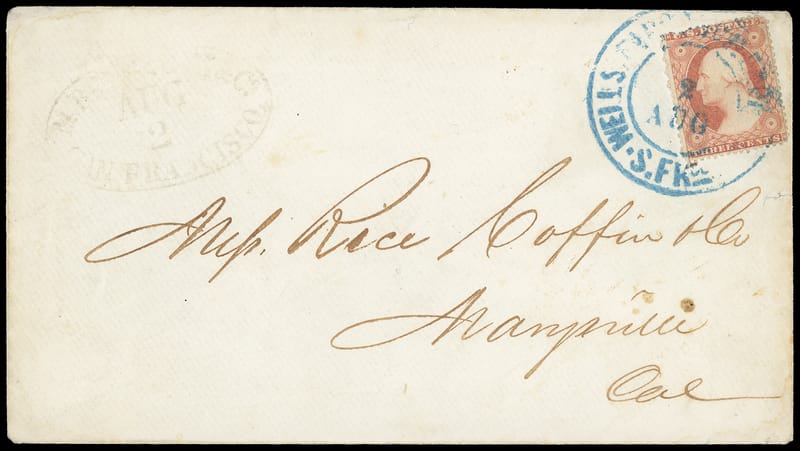 AUG
2
SAN FRANCISCO.
WELLS, FARGO
2
AUG
S. FR
U.S. POSTAGE
THREE CENTS
Mess. Rice Coffin & Co
Marysville
Cal